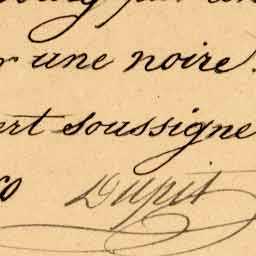 r une noire.
ert soussigne
Dupit